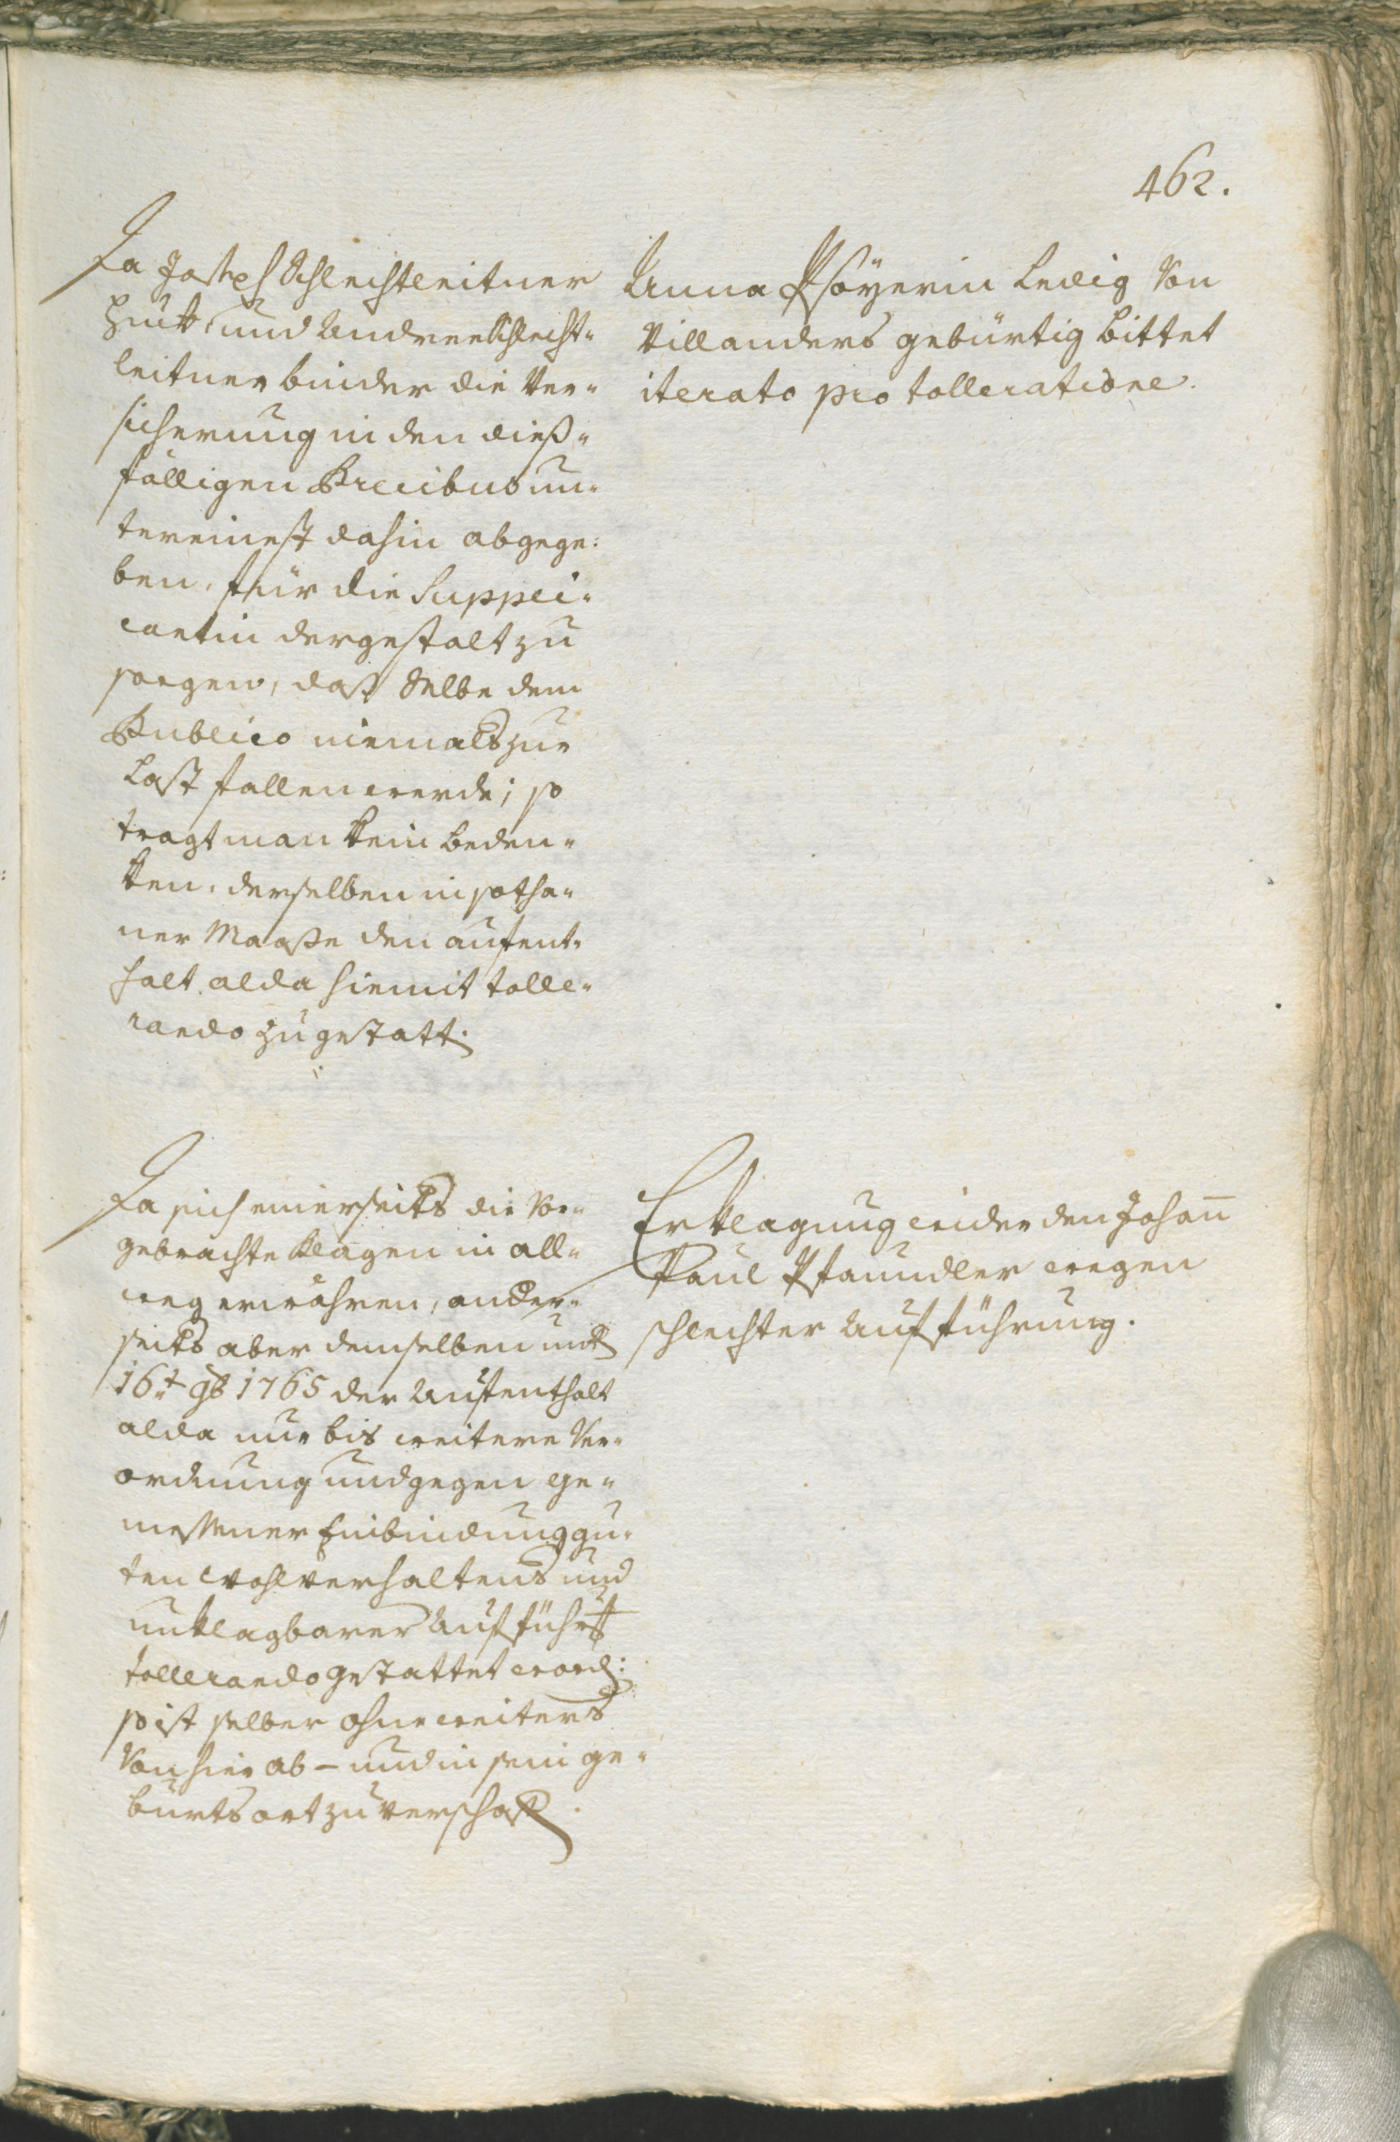 462.
Da Joseph Schlechtleitner
Huet: und Andree Schlecht¬
leitner binder die Ver¬
sicherung in den dieß¬
fälligen Precibus un¬
tereinest dahin abgege:
ben, für die Suppli¬
cantin dergestalt zu
sorgen, daß Selbe dem
Publico niemals zur
Last fallen werde; so
tragt man kein beden¬
ken, derselben in sotha¬
ner Maaße den aufent¬
halt alda hiemit tolle¬
rando zu gestatt:
Anna Psöyerin Ledig Von
Villanders gebürtig bittet
iterato pro tolleratione.
Da sich einerseits die Vor¬
gebrachte klagen in all¬
weg erwahren, ander¬
seits aber demselben unt:
16t 9b 1765 der Aufenthalt
alda nur bis weitere Ver¬
ordnung und gegen ge¬
messener Einbindung gu¬
ten Wohlverhaltens und
unklagbarer Aufführ:
tollerando gestattet word:
so ist selber ohne weiters
Von hier ab - und in sein ge¬
burtsort zu verschaff:
Erklagung wider den Johann
Paul Pfaundler wegen
schlechter Aufführung.